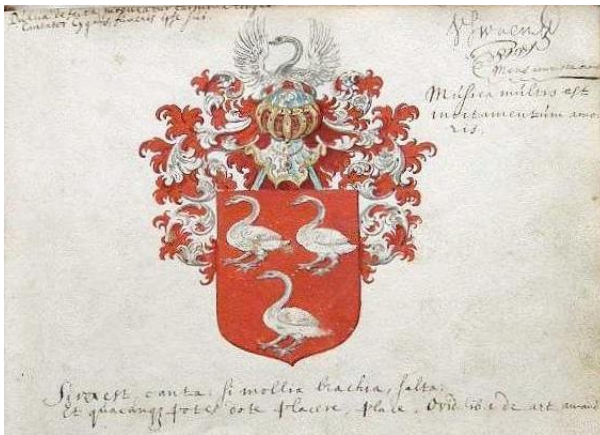 Dulcia defecta modulatur carmina lingua
Cantator Cygnus funeris ipse sui
Musica multis est
incitamentum amo-
ris.
Si vox est, canta: si mollia brachia, salta:
Et quacunq; potes dote placere, place. Ovid: lib: 1 de art amand